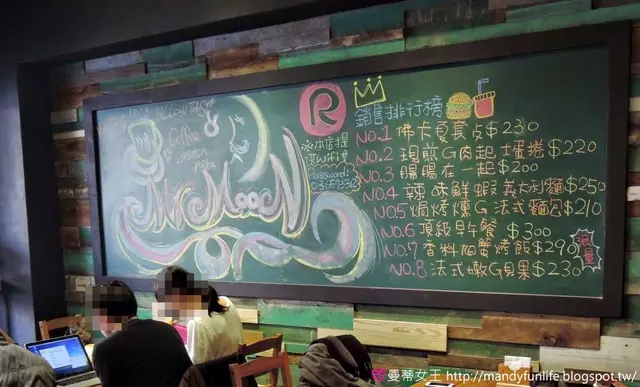 Coffee
& brunch
Pasta
Mr Moon
※本店提
供Wifi
Password:
R
銷售排行榜
NO.1 佛卡夏套点$230
NO.2 現煎G肉起士蛋捲$220
NO.3 腸腸在一起$200
NO.4 辣味鮮蝦義大利麵$250
NO.5 焗烤燻G法式麵包$210
NO.6 頂級早午餐 $300
NO.7 香料個蟹烤飯$290
NO.8 法式嫩G貝果$230
限量
曼蒂女王 http://mandyfunlife.blogspot.tw/